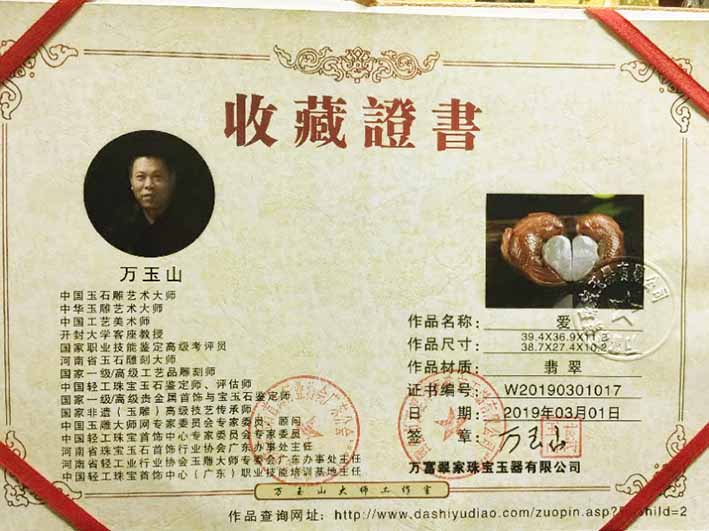 收藏證書
万玉山
中国玉石雕艺术大师
中华玉雕艺术大师
中国工艺美术师
开封大学客座教授
国家职业技能鉴定高级考评员
河南省玉石雕刻大师
国家一级/高级工艺品雕刻师
中国轻工珠宝玉石鉴定师、评估师
国家一级/高级贵金属首饰与宝玉石鉴定师
国家非遗(玉雕)高级技艺传承师
中国玉雕大师网专家委员会专家委员 顾问
中国轻工珠宝首饰中心专家委员会专家委员
河南省珠宝玉石首饰行业协会广东办事处主任
河南省轻工业行业协会玉雕大师专委会广东办事处主任
中国轻工珠宝首饰中心(广东)职业技能培训基地主任
作品名称: 爱
作品尺寸: 39.4X36.9X11.3
38.7X27.4X10.2
作品材质: 翡翠
证书编号: W20190301017
日期: 2019年03月01日
签章: 万玉山
万富翠家珠宝玉器有限公司
万玉山大师工作室
作品查询网址: http://www.dashiyudiao.com/zuopin.asp?